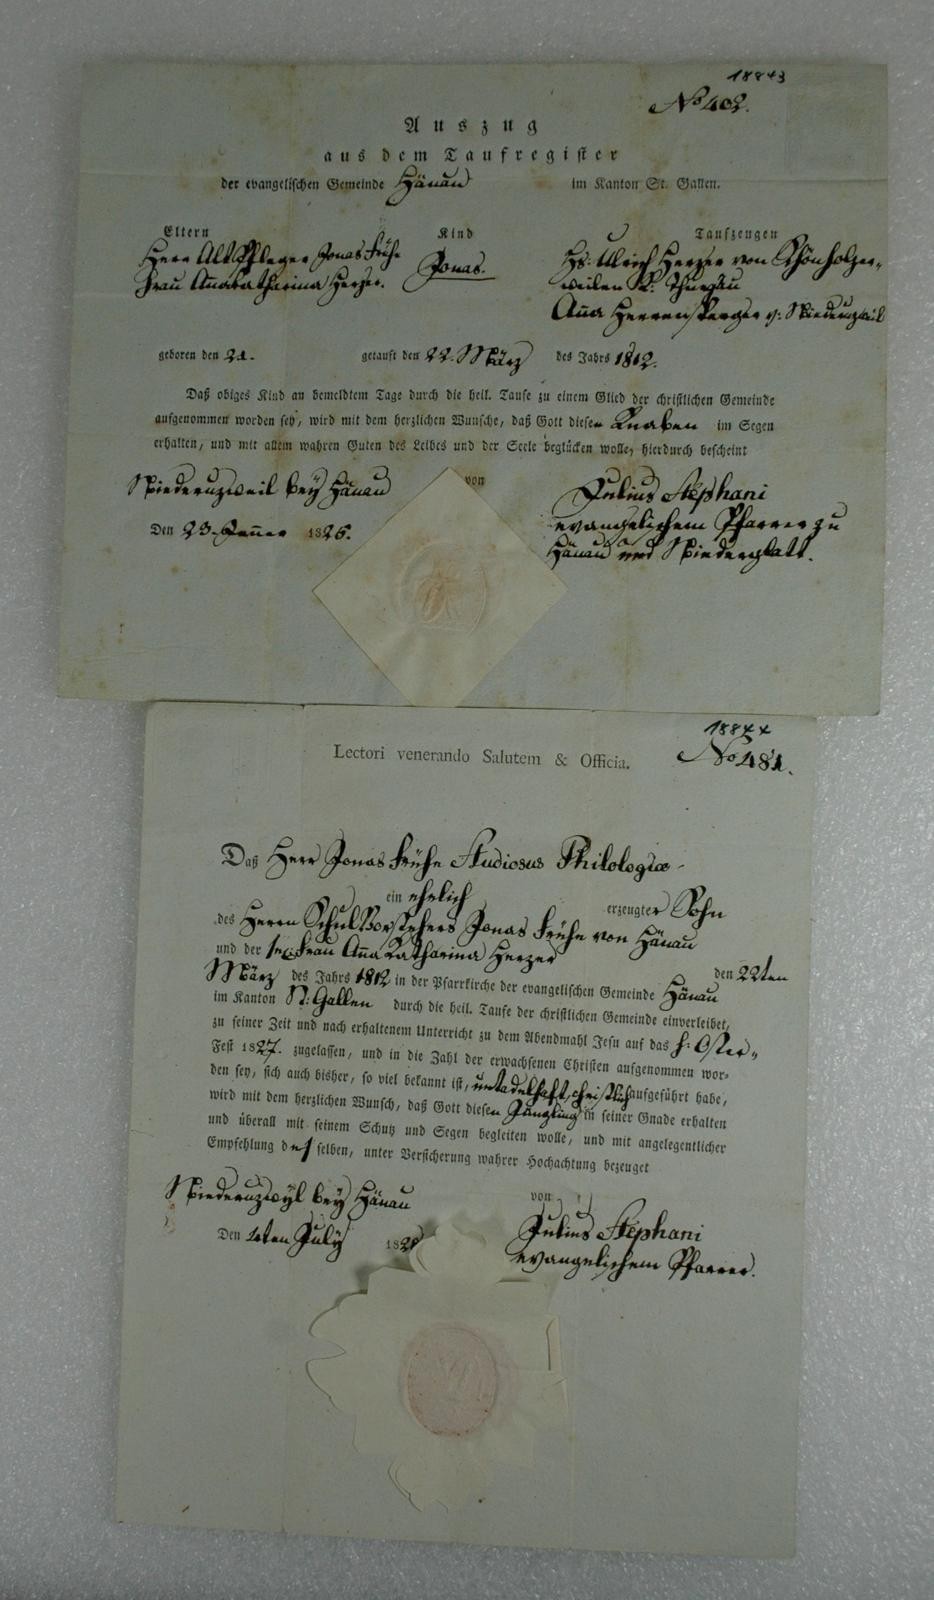 18843
No 402.
Auszug
aus dem Taufregister
der evangelischen Gemeinde Hänau im Kanton St. Gallen.
Eltern Kind Taufzeugen
Herr Alt Pfleger Jonas Frühe Jonas. Hs: Ulrich Herzer von Schönholzer-
Frau Anna Katharina Herzer. weilen K: Thurgäu
Anna Herrensperger v: Niederuzweil
geboren den 21. getauft den 22. März des Jahrs 1812.
Daß obiges Kind an bemeldtem Tage durch die heil. Taufe zu einem Glied der christlichen Gemeinde
aufgenommen worden sey, wird mit dem herzlichen Wunsche, daß Gott diesen Knaben im Segen
erhalten, und mit allem wahren Guten des Leibes und der Seele beglücken wolle, hierdurch bescheint
Niederuzweil bey Hänau von Julius Stephani
Den 23. Jenner 1826. evangelischem Pfarrer zu
Hänau und Niederglatt.
18844
No 481.
Lectori venerando Salutem & Officia.
Daß Herr Jonas Frühe Studiosus Philologiæ
ein ehrlich erzeugter Sohn
des Herrn Schul Vorstehers Jonas Frühe von Hänau
und der Frau Anna Katharina Herzer den 22ten
März des Jahrs 1812 in der Pfarrkirche der evangelischen Gemeinde Hänau
im Kanton St: Gallen durch die heil. Taufe der christlichen Gemeinde einverleibet,
zu seiner Zeit und nach erhaltenem Unterricht zu dem Abendmahl Jesu auf das h: Oster-
Fest 1827. zugelassen, und in die Zahl der erwachsenen Christen aufgenommen wor-
den sey, sich auch bisher, so viel bekannt ist, untadelhaft, christlich aufgeführt habe,
wird mit dem herzlichen Wunsch, daß Gott diesen Jüngling in seiner Gnade erhalten
und überall mit seinem Schutz und Segen begleiten wolle, und mit angelegentlicher
Empfehlung desselben, unter Versicherung wahrer Hochachtung bezeuget
Niederuzwyl bey Hänau von
Den July Julius Stephani
evangelichem Pfarrer.